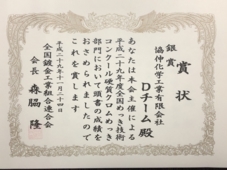 賞状
銀賞
協伸化学工業有限会社
Dチーム 殿
あなたは本会主催による
平成二十九年度全国めっき技術
コンクール硬質クロムめっき
部門において頭書の成績を
おさめられましたので
これを賞します
平成二十九年十一月二十四日
全国鍍金工業組合連合会
会長 森脇 隆